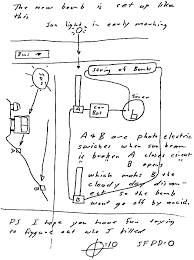 The new bomb is set up like
this
sun light in early morning
Bus
String of Bombs
A
Car
Bat
Timer
A & B are photo electric
swiches when sun beam
is broken A closes circut
B opens
which make B the
cloudy day discon-
ect so the bomb
wont go off by accid.
B
PS I hope you have fun trying
to figgure out who I killed
=10 SFPD=0